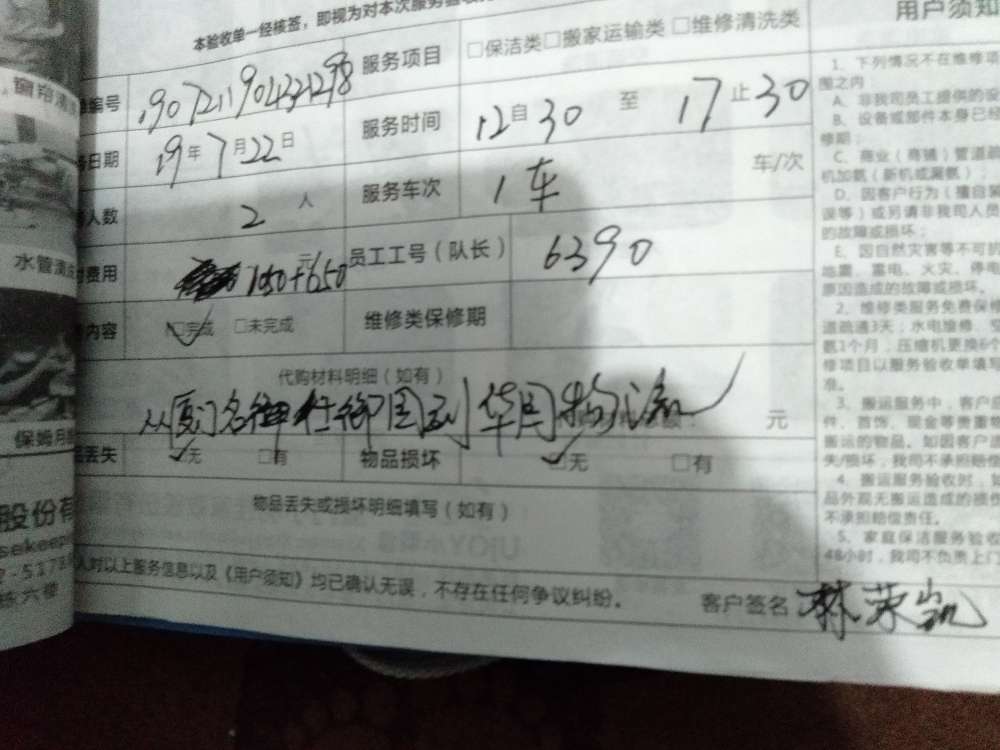 本验收单一经核签，即视为对本次服务验收
编号 190721190433298 服务项目 □保洁类□搬家运输类 □维修清洗类
日期 19年7月22日 服务时间 12自30 至 17止30
人数 2 人 服务车次 1车 车/次
费用 150+650 元 员工工号（队长） 6390
内容 □完成 □未完成 维修类保修期
代购材料明细（如有）
从厦门 到华 物流
元
丢失 □无 □有 物品损坏 □无 □有
物品丢失或损坏明细填写（如有）
人对以上服务信息以及《用户须知》均已确认无误，不存在任何争议纠纷。
客户签名 林荣凯
用户须知
1、下列情况不在维修项
围之内：
A、非我司员工提供的设
B、设备或部件本身已经
修期；
C、商业（商铺）管道疏
机加氨（新机或漏氨）；
D、因客户行为（擅自
误等）或另请非我司人员
的故障或损坏；
E、因自然灾害等不可抗
地震、雷电、火灾、停电
原因造成的故障或损坏。
2、维修类服务免费保修
道疏通3天；水电维修、
氨1个月，压缩机更换6个
修项目以服务验收单填写
准。
3、搬运服务中，客户
件、首饰、现金等贵重
搬运的物品。如因客户
失/损坏，我司不承担赔偿
4、搬运服务验收时，如
品外观无搬运造成的损
不承担赔偿责任。
5、家庭保洁服务验收
48小时，我司不负责上门
水管清
保姆月
股份有
sekeep
栋六楼